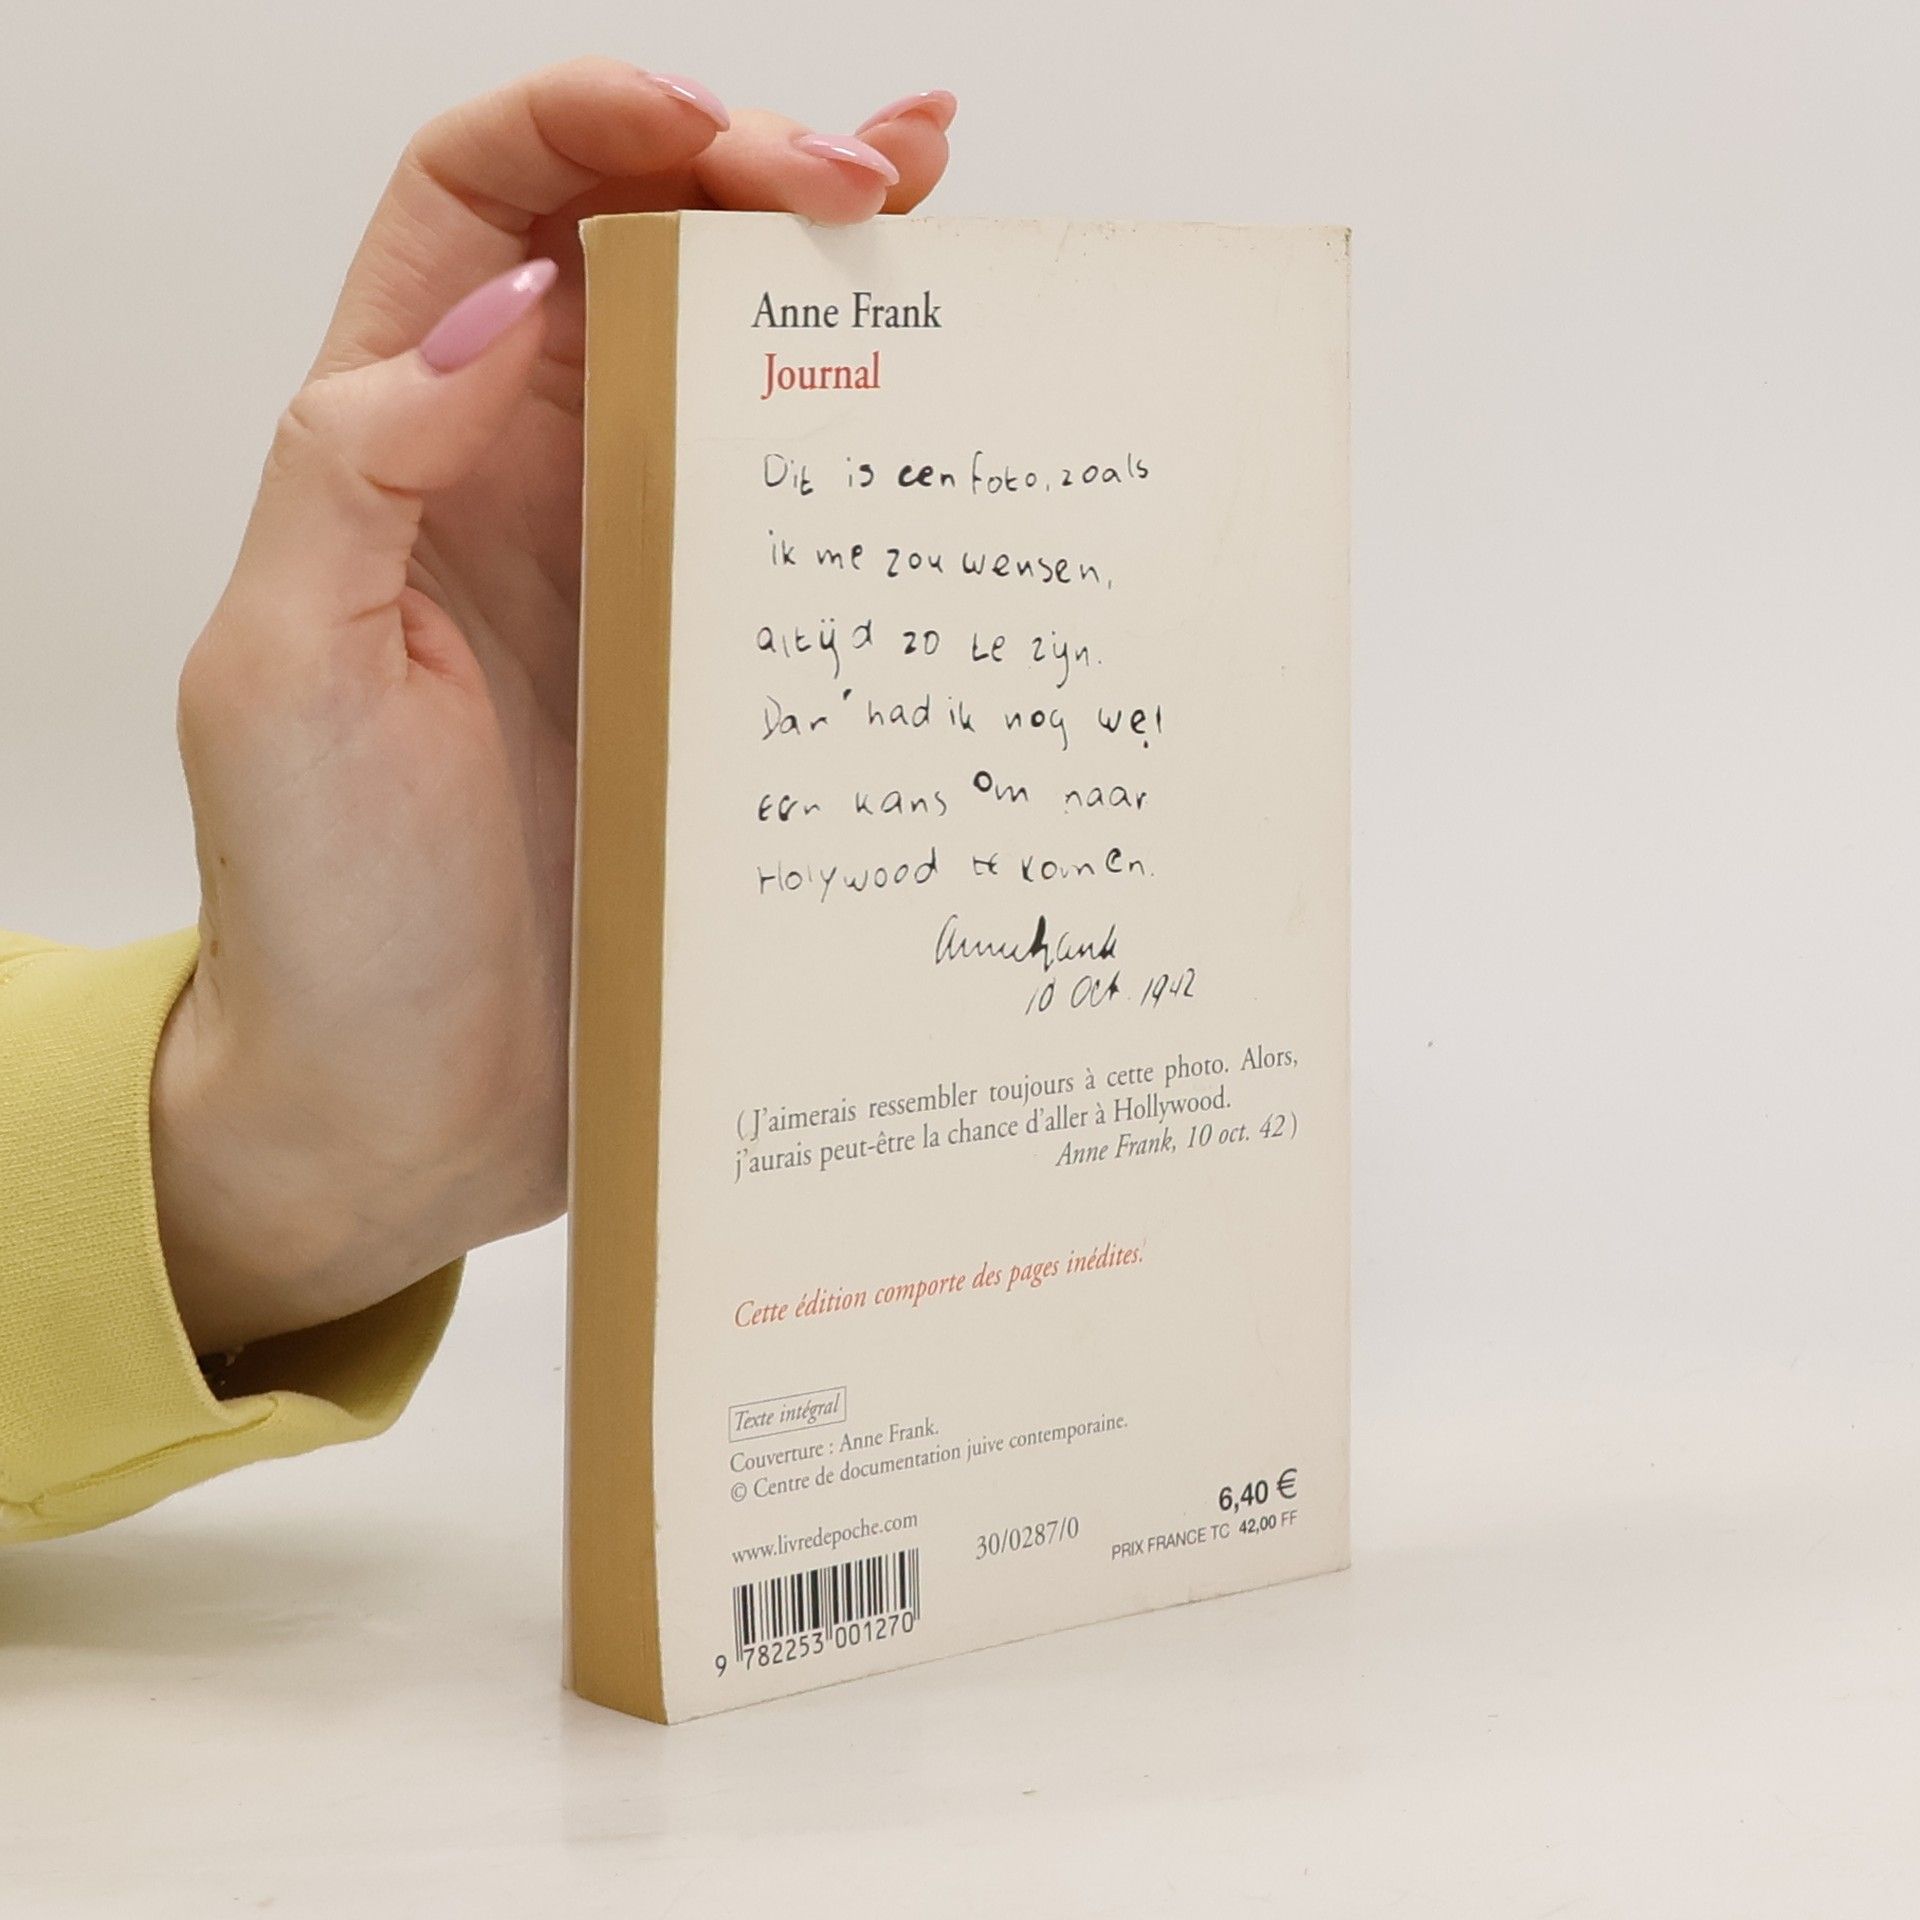 Anne Frank
Journal
Dit is een foto, zoals
ik me zou wensen,
altijd zo te zijn.
Dan had ik nog wel
een kans om naar
Holywood te komen.
Annefrank
10 Oct. 1942
(J'aimerais ressembler toujours à cette photo. Alors,
j'aurais peut-être la chance d'aller à Hollywood.
Anne Frank, 10 oct. 42)
Cette édition comporte des pages inédites.
Texte intégral
Couverture : Anne Frank.
© Centre de documentation juive contemporaine.
www.livredepoche.com
30/0287/0
6,40 €
PRIX FRANCE TC 42,00 FF
9 782253 001270